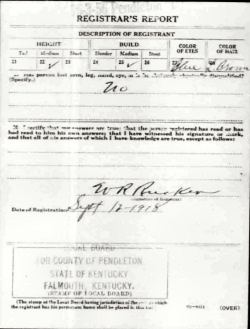 REGISTRAR'S REPORT
DESCRIPTION OF REGISTRANT
HEIGHT BUILD COLOR OF EYES COLOR OF HAIR
Tall Medium Short Slender Medium Stout
21 22 ✓ 23 24 25 ✓ 26 27 Blue 28 Brown
Has person lost arm, leg, hand, eye,
(Specify).
No
I certify that my answers are true; that the person registered has read or has
had read to him his own answers; that I have witnessed his signature or mark,
and that all of his answers of which I have knowledge are true, except as follows:
W R
(Signature of Registrar)
Date of Registration Sept 12-1918
LOCAL BOARD
FOR COUNTY OF PENDLETON
STATE OF KENTUCKY
FALMOUTH, KENTUCKY.
(STAMP OF LOCAL BOARD)
(The stamp of the Local Board having jurisdiction of the area in which
the registrant has his permanent home shall be placed in this box.)
(OVER)